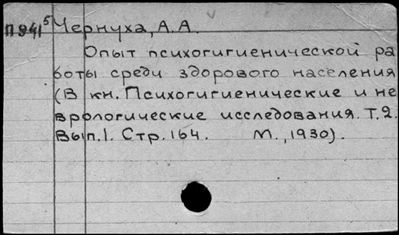 П841⁵ Чернуха, А.А.
Опыт психогигиенической ра
боты среди здорового населения
(В кн. Психогигиенические и не
врологические исследования. Т.2.
Вып.1. Стр.164. М.,1930).